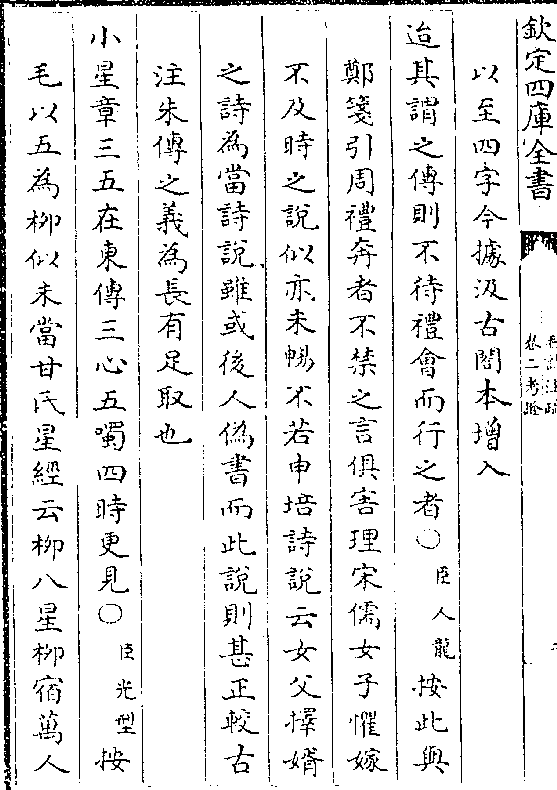 欽定四庫全書
毛詩注疏
卷二考證
以至四字今據汲古閣本增入
迨其謂之傳則不待禮會而行之者○臣人龍按此與
鄭箋引周禮奔者不禁之言俱害理宋儒女子懼嫁
不及時之說似亦未暢不若申培詩說云女父擇婿
之詩為當詩說雖或後人偽書而此說則甚正較古
注朱傳之義為長有足取也
小星章三五在東傳三心五噣四時更見○臣光型按
毛以五為柳似未當甘氏星經云柳八星柳宿萬人